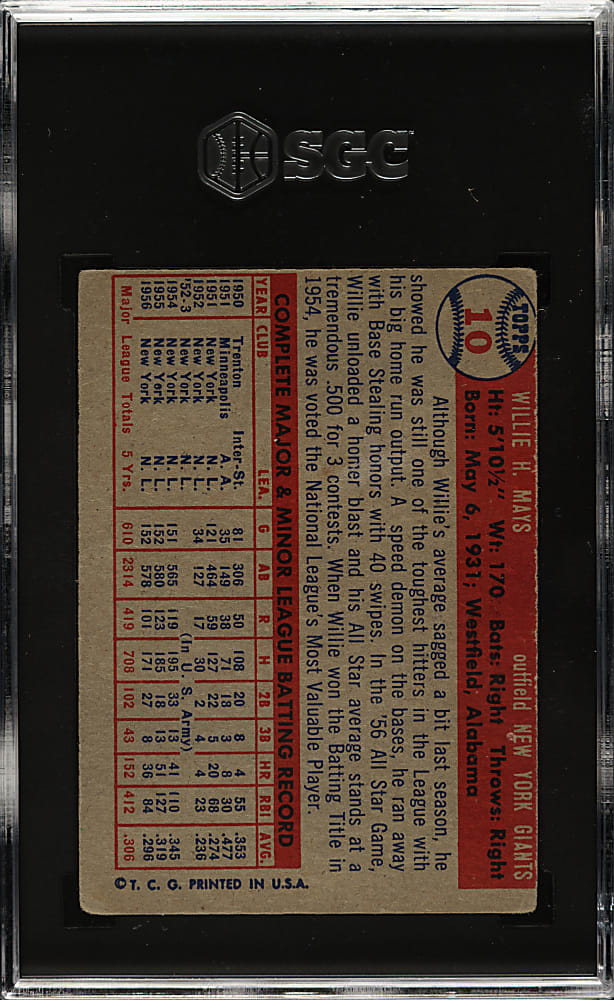 SGC
TOPPS
10
WILLIE H. MAYS outfield NEW YORK GIANTS
Ht: 5'10½" Wt: 170 Bats: Right Throws: Right
Born: May 6, 1931; Westfield, Alabama
Although Willie's average sagged a bit last season, he
showed he was still one of the toughest hitters in the League with
his big home run output. A speed demon on the bases, he ran away
with Base Stealing honors with 40 swipes. In the '56 All Star Game,
Willie unloaded a homer blast and his All Star average stands at a
tremendous .500 for 3 contests. When Willie won the Batting Title in
1954, he was voted the National League's Most Valuable Player.
COMPLETE MAJOR & MINOR LEAGUE BATTING RECORD
YEAR CLUB LEA. G AB R H 2B 3B HR RBI AVG.
1950 Trenton Inter-St. 81 306 50 108 20 8 4 55 .353
1951 Minneapolis A. A. 35 149 38 71 18 3 8 30 .477
1951 New York N. L. 121 464 59 127 22 5 20 68 .274
1952 New York N. L. 34 127 17 30 2 4 4 23 .236
'52-3 New York N. L. (In U. S. Army)
1954 New York N. L. 151 565 119 195 33 13 41 110 .345
1955 New York N. L. 152 580 123 185 18 13 51 127 .319
1956 New York N. L. 152 578 101 171 27 8 36 84 .296
Major League Totals 5 Yrs. 610 2314 419 708 102 43 152 412 .306
© T. C. G. PRINTED IN U.S.A.